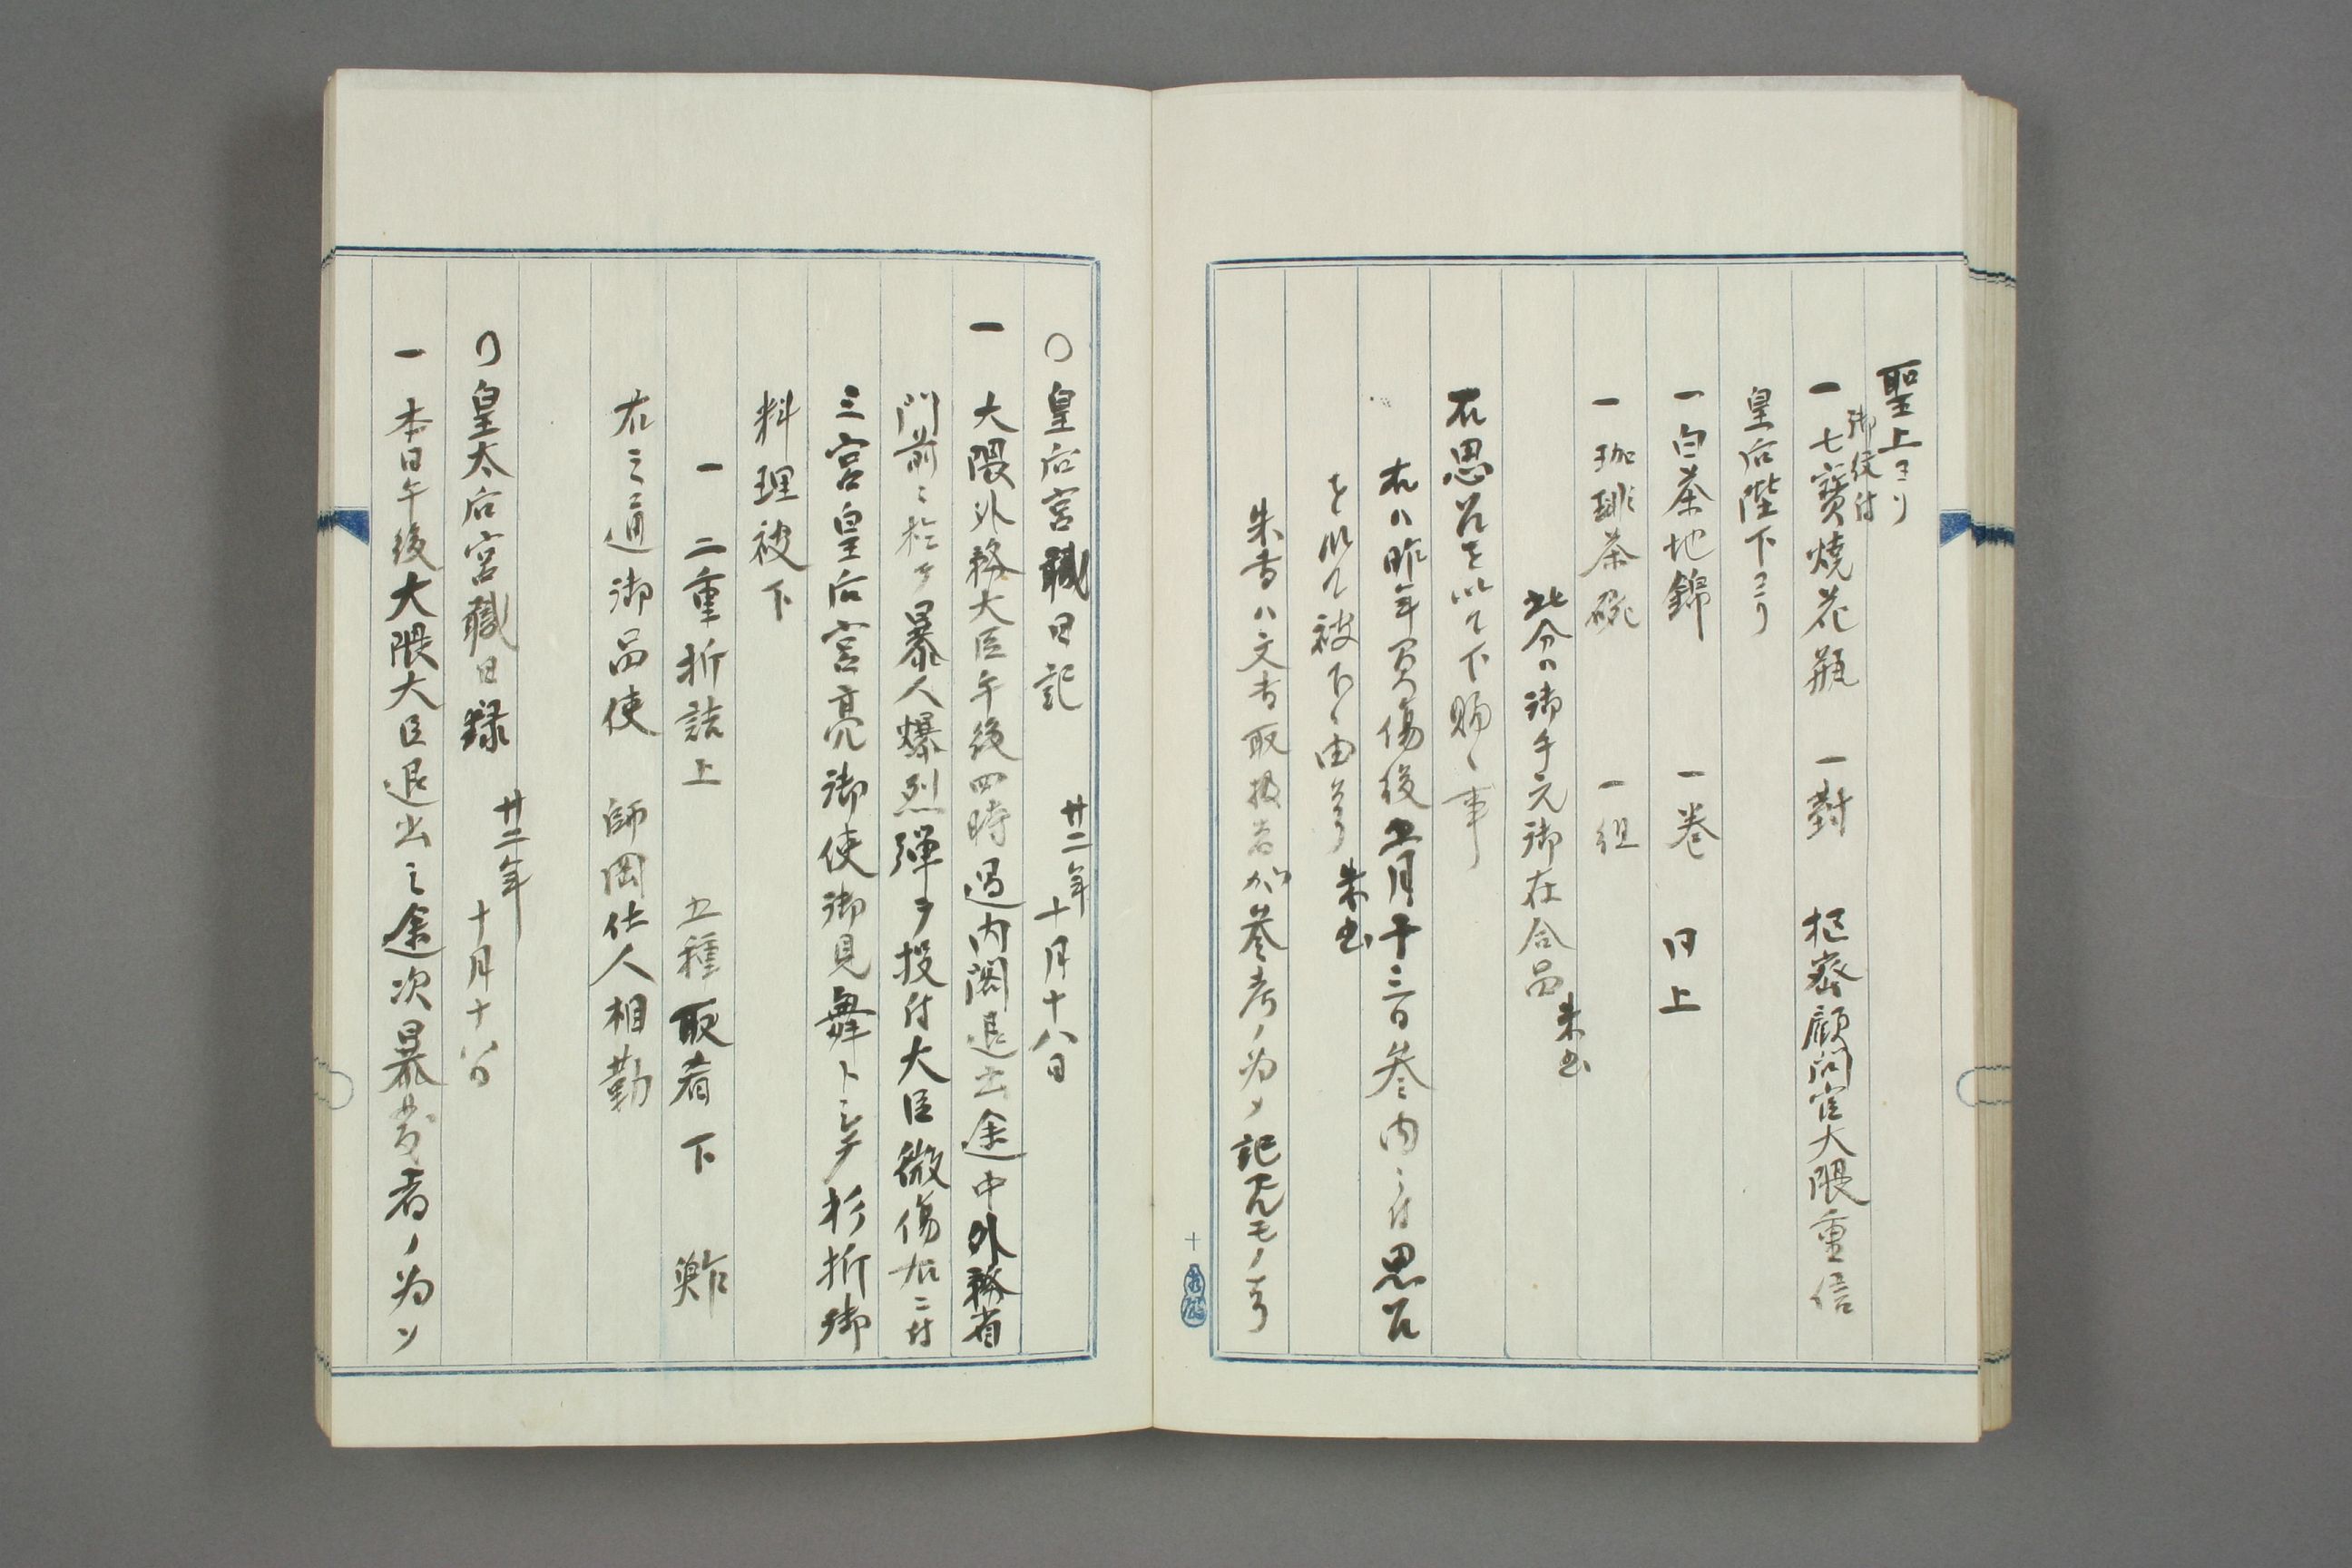 聖上ヨリ
御役付
一七寶燒花瓶 一對 枢密顧問官大隈重信
皇后陛下ヨリ
一白茶地錦 一巻 同上
一珈琲茶碗 一組
此分ハ御手元御在合品 朱書
右思召を以て下賜候事
右ハ昨年負傷後五月十三日参内ニ付思召
を以て被下候由ナリ 朱書
朱書ハ文書取扱者ガ参考ノ為メ記セルモノナリ
十
〇皇后宮職日記 廿二年 十月十八日
一 大隈外務大臣午後四時過内閣退出途中外務省
門前ニ於テ暴人爆烈弾ヲ投付大臣微傷右ニ付
三宮皇后宮亮御使御見舞トシテ杉折御
料理被下
一 二重折詰上 五種取肴 下 鮓
右之通御品使 師岡仕人相勤
〇皇太后宮職日録 廿二年 十月十八日
一 本日午後大隈大臣退出之途次暴発者ノ為ン